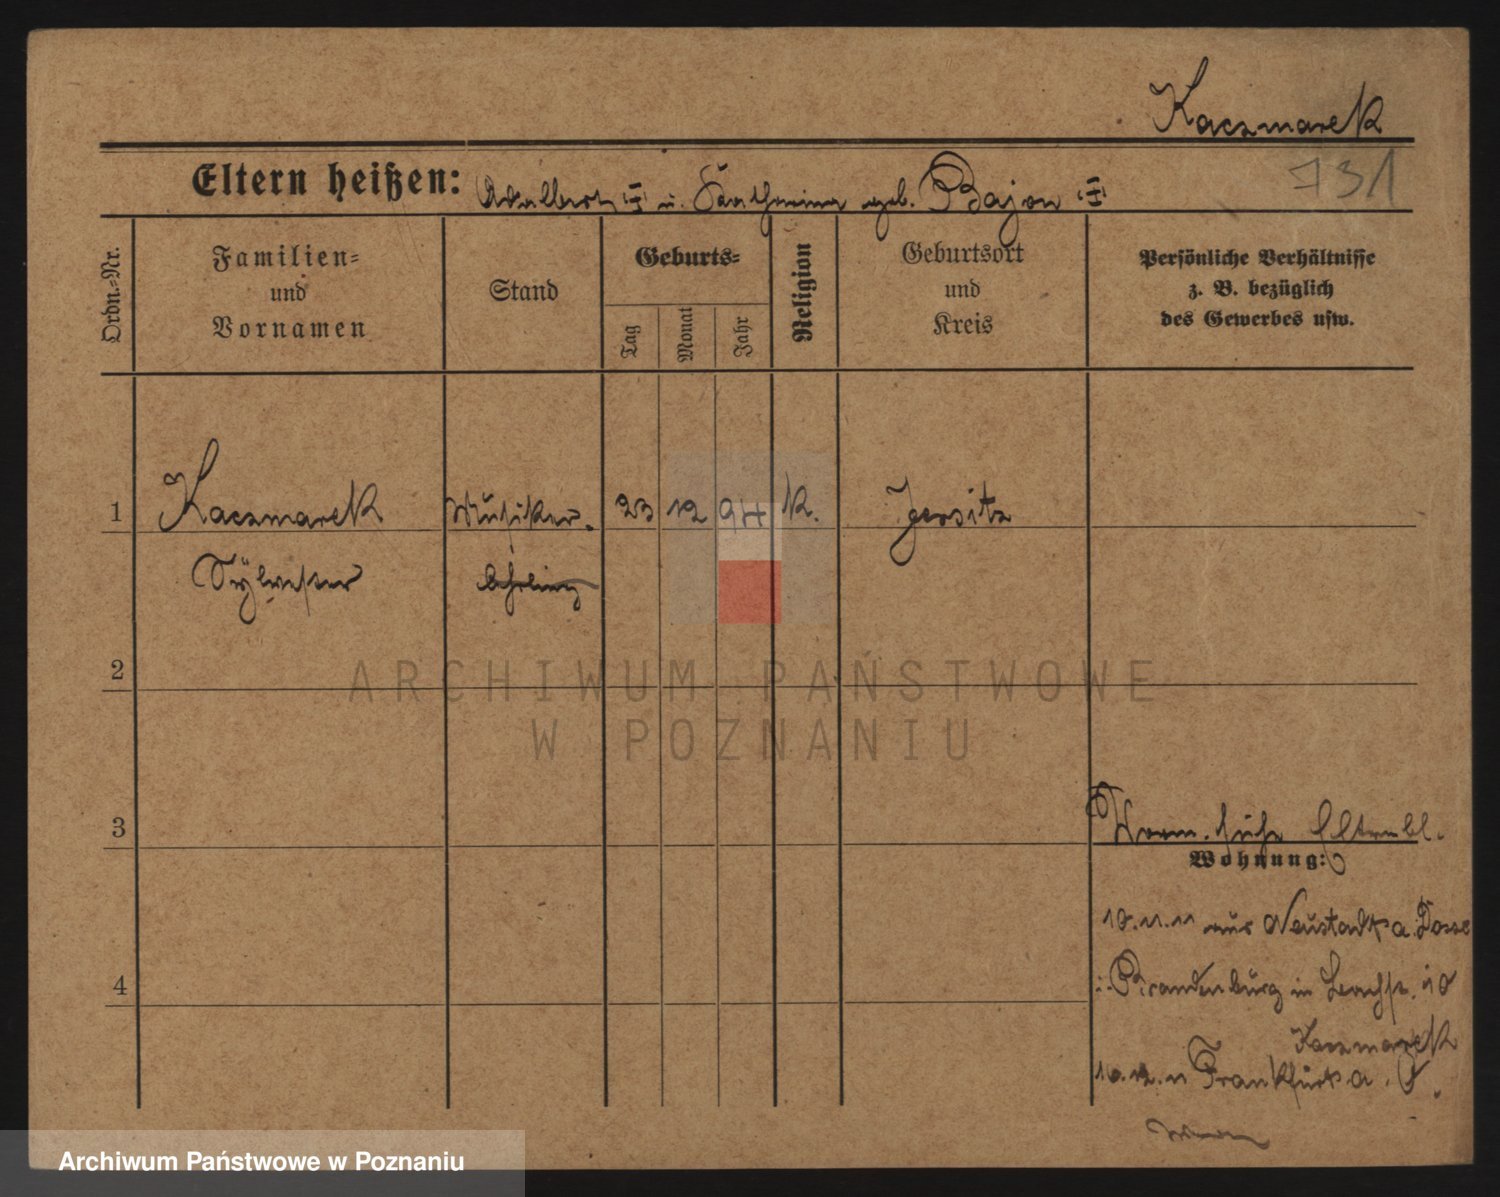 Kaczmarek
731
Eltern heißen: Adalbert u. Katharina geb. Bajon
Ordn.-Nr.
Familien-
und
Vornamen
Stand
Geburts-
Tag
Monat
Jahr
Religion
Geburtsort
und
Kreis
Persönliche Verhältnisse
z. B. bezüglich
des Gewerbes usw.
1 Kaczmarek Musiker- 23 12 94 K. Jersitz
Sylvester lehrling
2
ARCHIWUM PAŃSTWOWE
W POZNANIU
3
Vorm. siehe Elternbl.
Wohnung:
10.11.11 aus Neustadt a. Dosse
i. Brandenburg in 10
Kaczmarek
10.12.11 Frankfurt a. O.
4
Archiwum Państwowe w Poznaniu